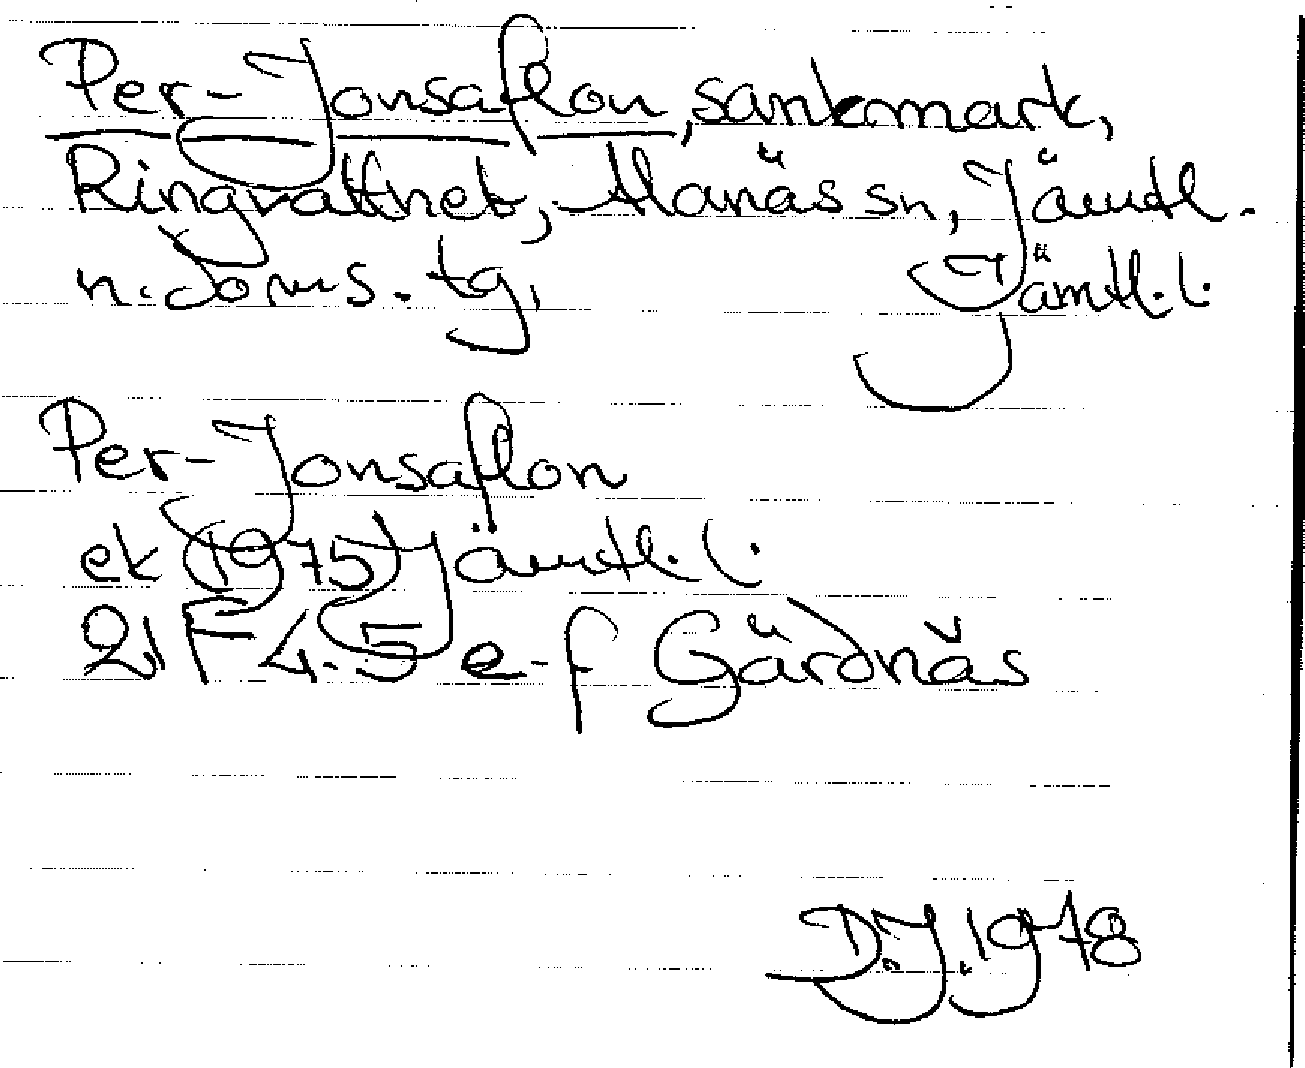 Per-Jonsaflon, sankmark,
Ringvattnet, Alanäs sn, Jämtl.
n. doms. tg, Jämtl. l.
Per-Jonsaflon
ek (1975) Jämtl. l.
21F 4-5 e-f Gärdnäs
D.J. 1978